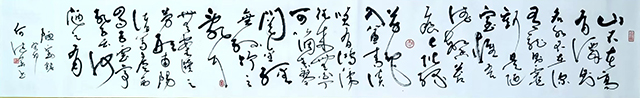 山不在高
有仙则
名水不在深
有龙则灵
斯是陋
室惟吾
德馨苔
痕上阶绿
草色
入帘青谈
笑有鸿儒
往来无白丁
可以调素琴
阅金经
无丝竹之
乱耳
无案牍之
劳形南阳
诸葛庐西
蜀子云亭
孔子云何
陋之有
陋室铭